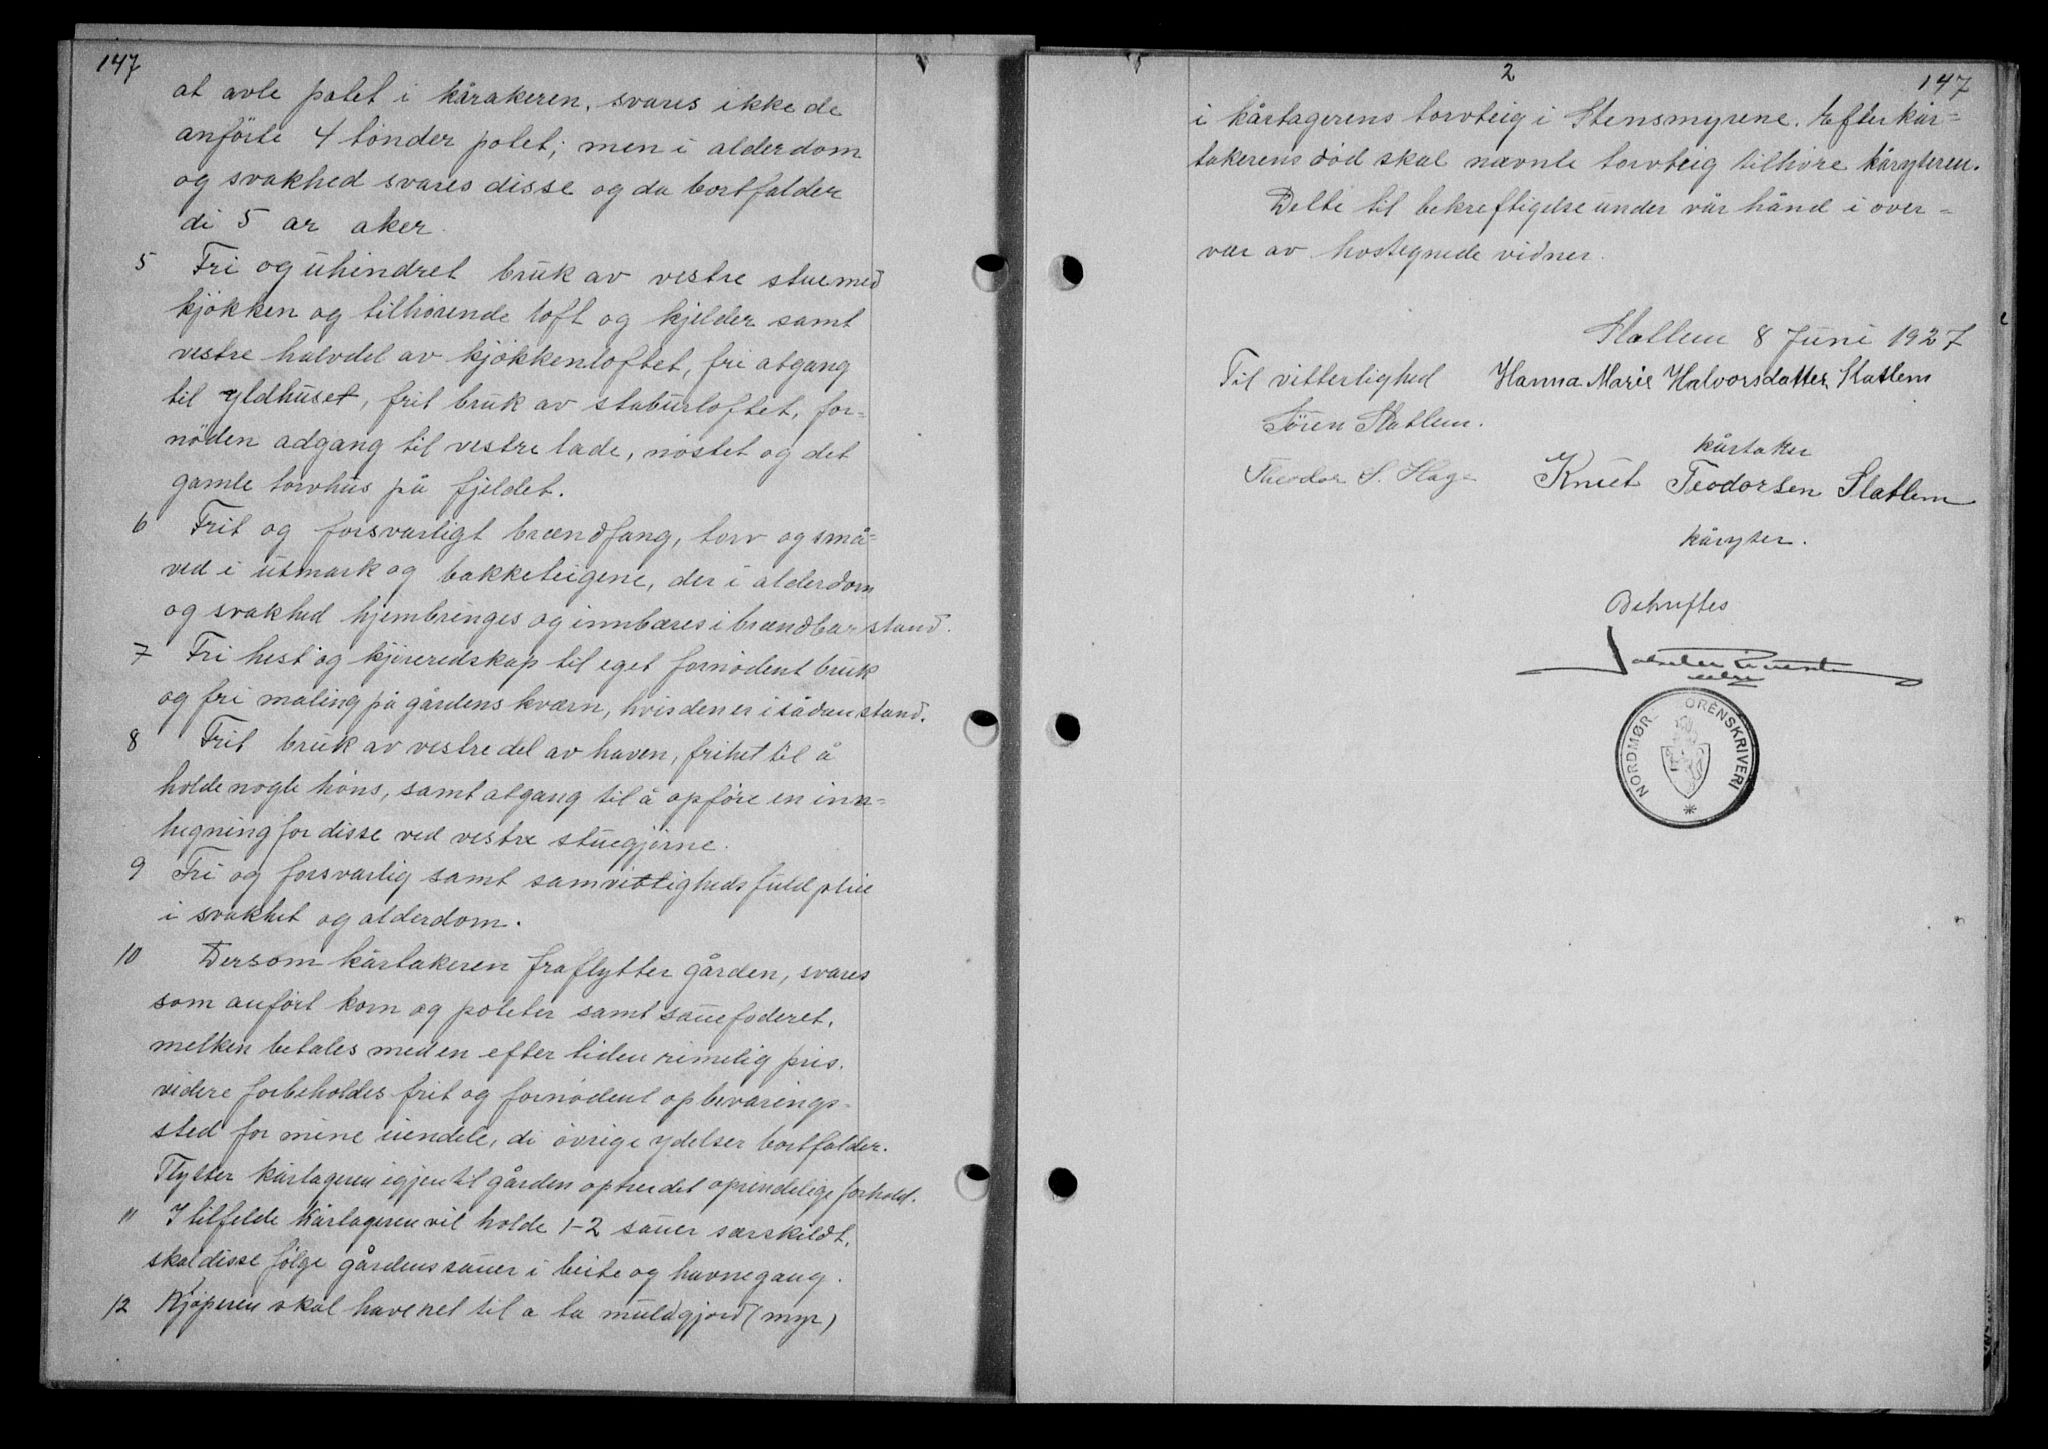 147
at avle potet i kårakeren, svares ikke de
anförte 4 tönder potet; men i alderdom
og svakhed svares disse og da bortfalder
di 5 ar aker.
5 Fri og uhindret bruk av vestre stue med
kjökken og tilhörende loft og kjelder samt
vestre halvdel av kjökkenloftet, fri atgang
til yldhuset, frit bruk av stabursloftet, for-
nöden adgang til vestre lade, nöstet og det
gamle torvhus på fjeldet.
6 Frit og forsvarligt brændfang, torv og små-
ved i utmark og bakketeigene, der i alderdom
og svakhed hjembringes og innbæres i brændbar stand.
7 Fri hest og kjöreredskap til eget fornödent bruk
og fri maling på gårdens kværn, hvis den er i sådan stand.
8 Frit bruk av vestre del av haven, frihet til å
holde nogle höns, samt atgang til å opföre en inn-
hegning for disse ved vestre stuegjörne.
9 Fri og forsvarlig samt samvittighedsfuld pleie
i svakhet og alderdom.
10 Dersom kårtakeren fraflytter gården, svares
som anfört korn og poteter samt sauefoderet,
melken betales med en efter tiden rimelig pris.
videre forbeholdes frit og fornödent opbevarings-
sted for mine eiendele, di övrige ydelser bortfalder.
Flytter kårtageren igjen til gården optrer det oprindelige forhold.
11 I tilfelde kårtageren vil holde 1-2 sauer særskildt,
skal disse fölge gårdens sauer i beite og havnegang.
12 Kjöperen skal have ret til a ta muldgjord (myr)
2
147
i kårtagerens torvteig i Stensmyrene. Efter kår-
takerens död skal nævnte torvteig tilhöre kåryteren.
Dette til bekreftigelse under vår hånd i over-
vær av hostegnede vidner.
Slatlem 8 Juni 1927
Til vitterlighed Hanna Marie Halvorsdatter Slatlem
Sören Slatlem.
kårtaker
Theodor S. Hage Knut Teodorsen Slatlem
kåryter.
Bekreftes
NORDMØR ORENSKRIVERI